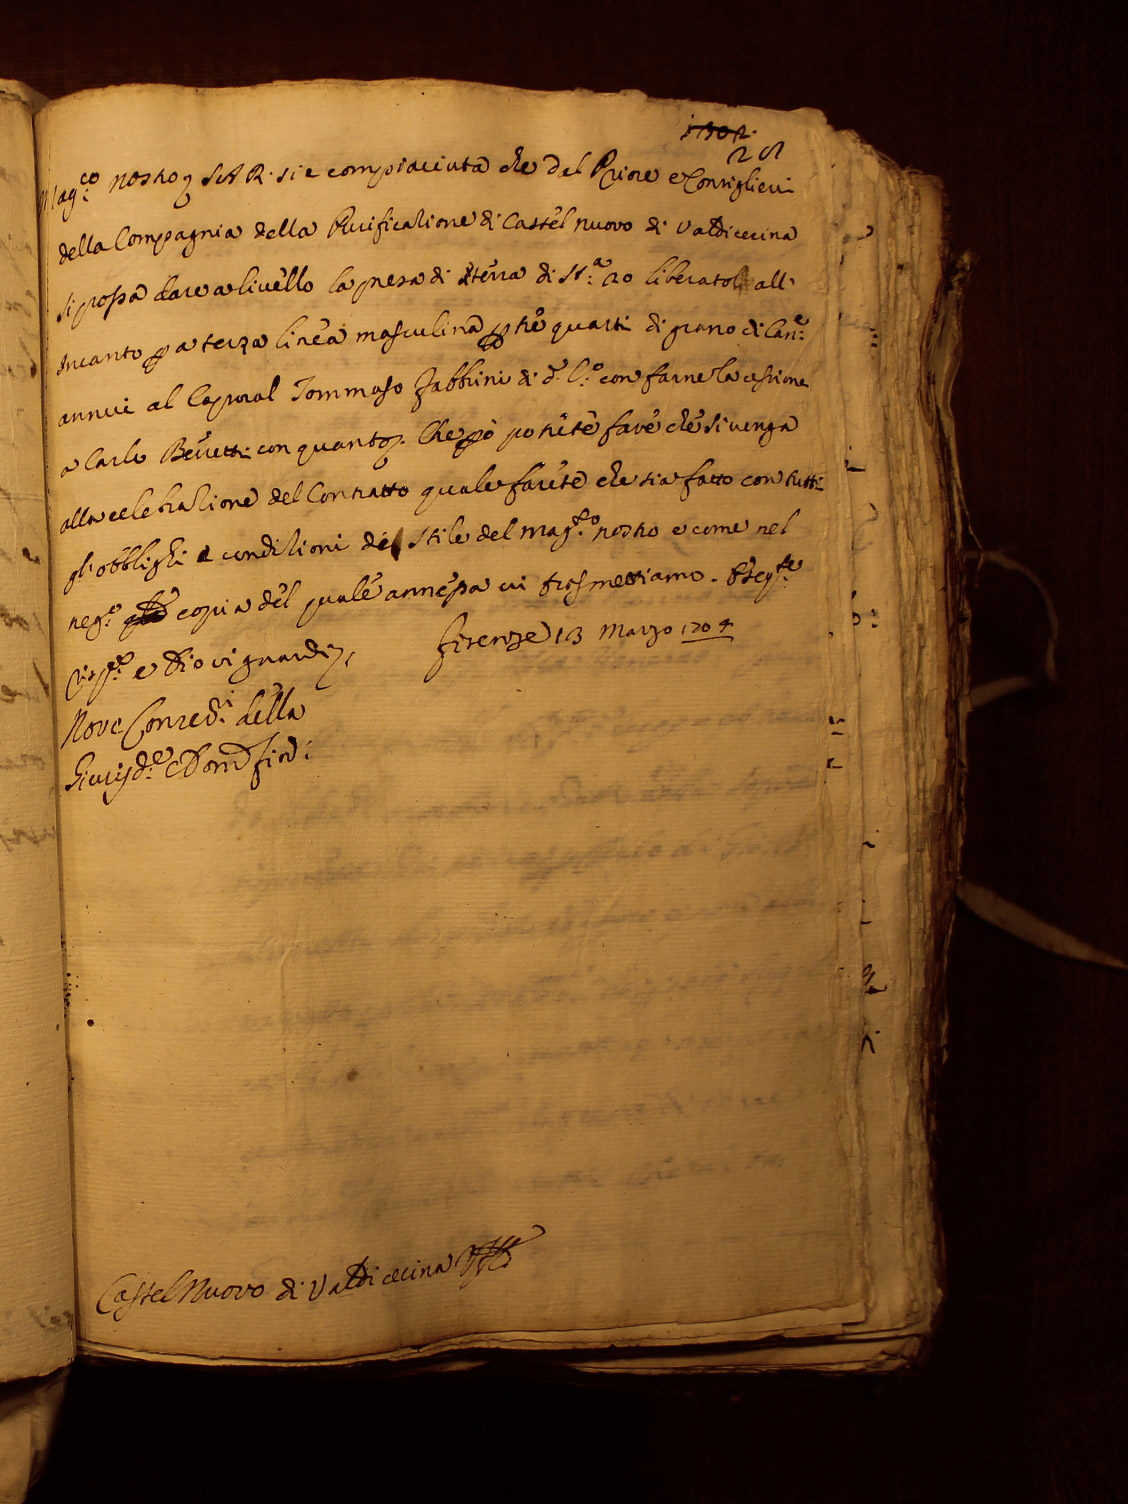 1702
28
Mag:co nostro S.A.R. si è compiaciuta che del Priore e Consiglieri
della Compagnia della Purificazione di Castel nuovo di Valdicecina
si possa dare a livello la presa di terra di St:a 20 liberatoli all'
Incanto p a terza linea masculina p tre quarti di grano di Can:e
annui al Caporal Tommaso Fabbrini di d.o l:o con farne la cessione
a Carlo Beretti con quanto. Che pò potrete fare che si venga
alla celebrazione del Contratto quale farete che sia fatto con tutti
gl'obblighi e condizioni de Stile del mag:to nostro e come nel
neg:o copia del quale annessa vi trasmettiamo.
e Dio vi guardi
Firenze 13 Marzo 1704
Nove Conser:i della
Giurisd:e e Dom: Fior:
Castel Nuovo di Valdicecina